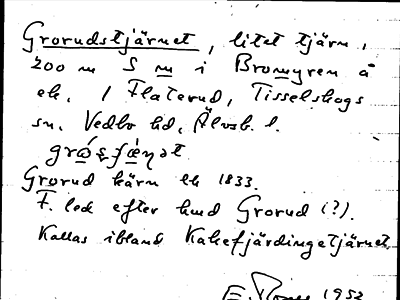 Grorudstjärnet, litet tjärn,
200 m S m i Bromyren å
ek. 1 Flaterud, Tisselskogs
sn. Vedbo hd, Älvsb. l.
Grorud kärn ek 1833.
F. led efter hmd Grorud (?).
Kallas ibland Kakefjärdingetjärnet.
E. 1952